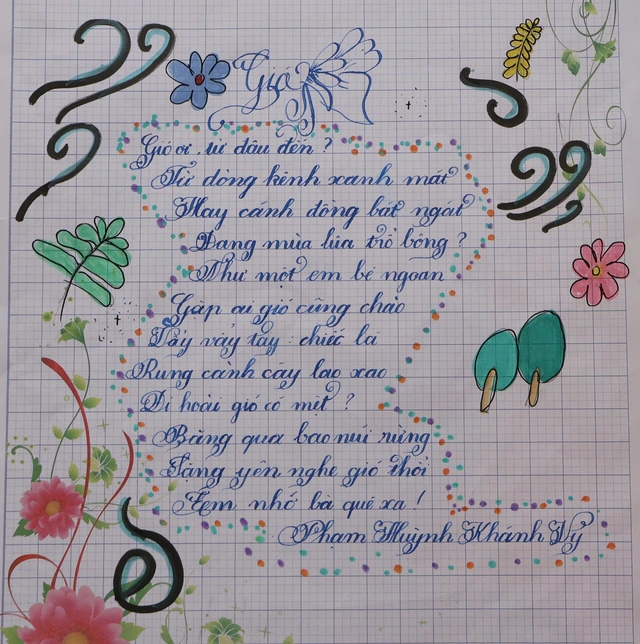 Gió
Gió ơi, từ đâu đến ?
Từ dòng kênh xanh mát
Hay cánh đồng bát ngát
Đang mùa lúa trổ bông ?
Như một em bé ngoan
Gặp ai gió cũng chào
Vẫy vẫy tay : chiếc lá
Rung cành cây lao xao
Đi hoài gió có mệt ?
Băng qua bao núi rừng
Lặng yên nghe gió thổi
Em nhớ bà quê xa !
Phạm Huỳnh Khánh Vy